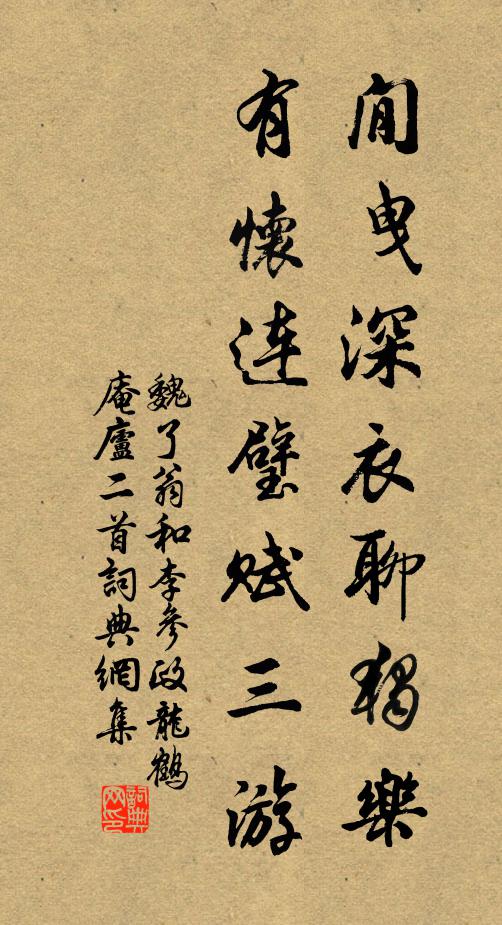 閒曳深衣聊獨樂
有懷連璧賦三游
魏了翁和李參政龍鶴
庵廬二首詞典網集
詞典網印